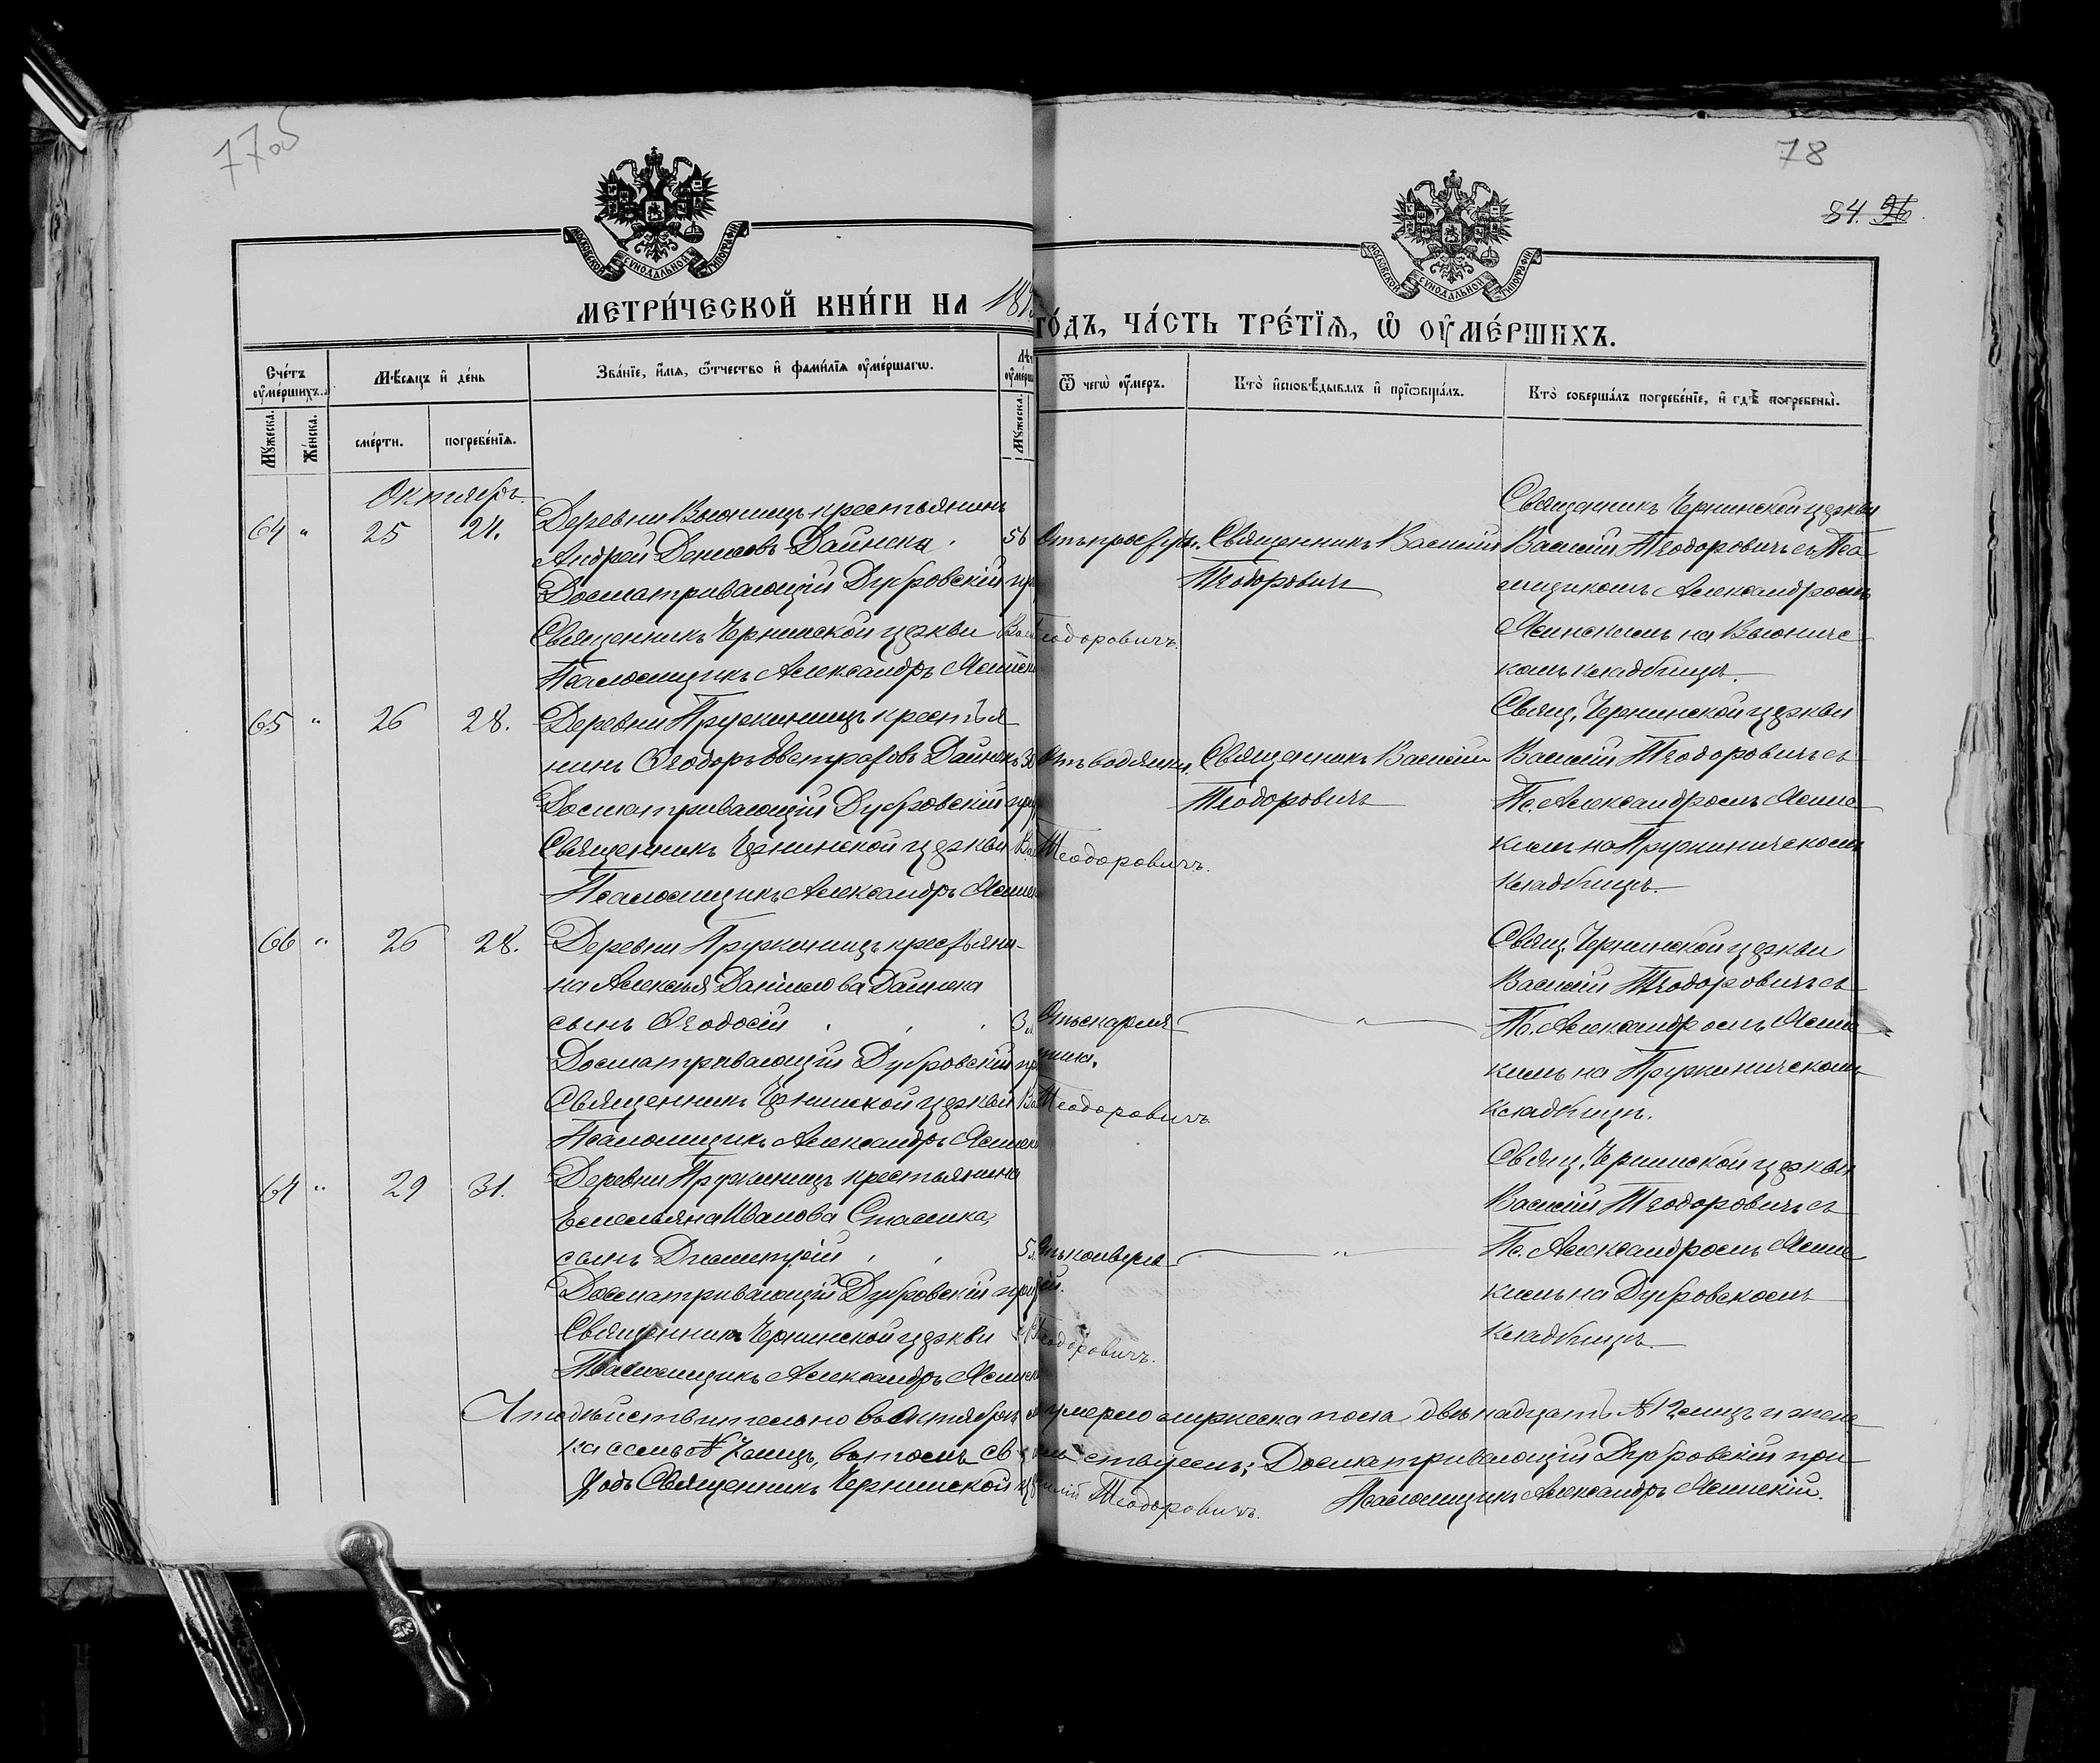 77об
78
84. 96.
МОСКОВСКОЙ СѴНОДАЛЬНОЙ ТИПОГРАФІИ
МОСКОВСКОЙ СѴНОДАЛЬНОЙ ТИПОГРАФІИ
МЕТРИ́ЧЕСКОЙ КНИ́ГИ НА 187
ГО́ДЪ, ЧА́СТЬ ТРЕ́ТЇѦ, Ѡ҆ ОУ҆МЕ́РШИХЪ.
Сче́тъ оу҆ме́ршихъ.
Мѣ́сяцъ и҆ де́нь
Зва́нїе, и҆́мѧ, ѻ҆́тчество и҆ фами́лїѧ оу҆ме́ршагѡ.
Лѣт
оу҆ме́рш
Ѿ чегѡ̀ оу҆́меръ.
Кто̀ и҆сповѣ́дывалъ и҆ прїѡбща́лъ.
Кто̀ соверша́лъ погребе́нїе, и҆ гдѣ̀ погребены̀.
Мꙋ́жеска.
Же́нска.
сме́рти.
погребе́нїѧ.
Мꙋ́жеска.
Октябрь.
64 " 25 27.
Деревни Вьюнищъ крестьянинъ
Андрей Денисовъ Дайнека 56
Досматривающій Дубровскій при
Священникъ Чернинской церкви Вас Теодоровичъ.
Псаломщикъ Александръ Ясинск
Отъ простуды.
Священникъ Василій
Теодоровичъ
Священникъ Чернинской церкви
Василій Теодоровичъ съ Пса
ломщикомъ Александромъ
Ясинскимъ на Вьюнищс
комъ кладбищѣ.
65 " 26 28.
Деревни Пружинищъ крестья
нинъ Ѳеодоръ Евстратовъ Дайнека 30
Досматривающій Дубровскій при
Священникъ Чернинской церкви Вас Теодоровичъ.
Псаломщикъ Александръ Ясинск
Отъ водянки.
Священникъ Василій
Теодоровичъ
Свящ. Чернинской церкви
Василій Теодоровичъ съ
Пс. Александромъ Ясинс
кимъ на Пружиничскомъ
кладбищѣ.
66 " 26 28.
Деревни Пружинищъ крестьяни
на Алексѣя Данилова Дайнека
сынъ Ѳеодосій 3
Досматривающій Дубровскій при
Священникъ Чернинской церкви Вас Теодоровичъ
Псаломщикъ Александръ Ясинск
Отъ скарла
тины.
"
Свящ. Чернинской церкви
Василій Теодоровичъ съ
Пс. Александромъ Ясинс
кимъ на Пружиничскомъ
кладбищѣ.
67 " 29 31.
Деревни Пружинищъ крестьянина
Емельяна Иванова Сташика,
сынъ Димитрій 5
Досматривающій Дубровскій при
Священникъ Чернинской церкви Теодоровичъ.
Псаломщикъ Александръ Ясинск
Отъ конвуль
сій.
"
Свящ. Чернинской церкви
Василій Теодоровичъ съ
Пс. Александромъ Ясинс
кимъ на Дубровскомъ
кладбищѣ.
Что дѣйствительно въ Октябрѣ умерло мужеска пола двѣнадцать № 12 лицъ и женс
ка семь № 7 лицъ, въ томъ свидѣтельствуемъ; Досматривающій Дубровскій при
ходъ Священникъ Чернинской Василій Теодоровичъ. Псаломщикъ Александръ Ясинскій.